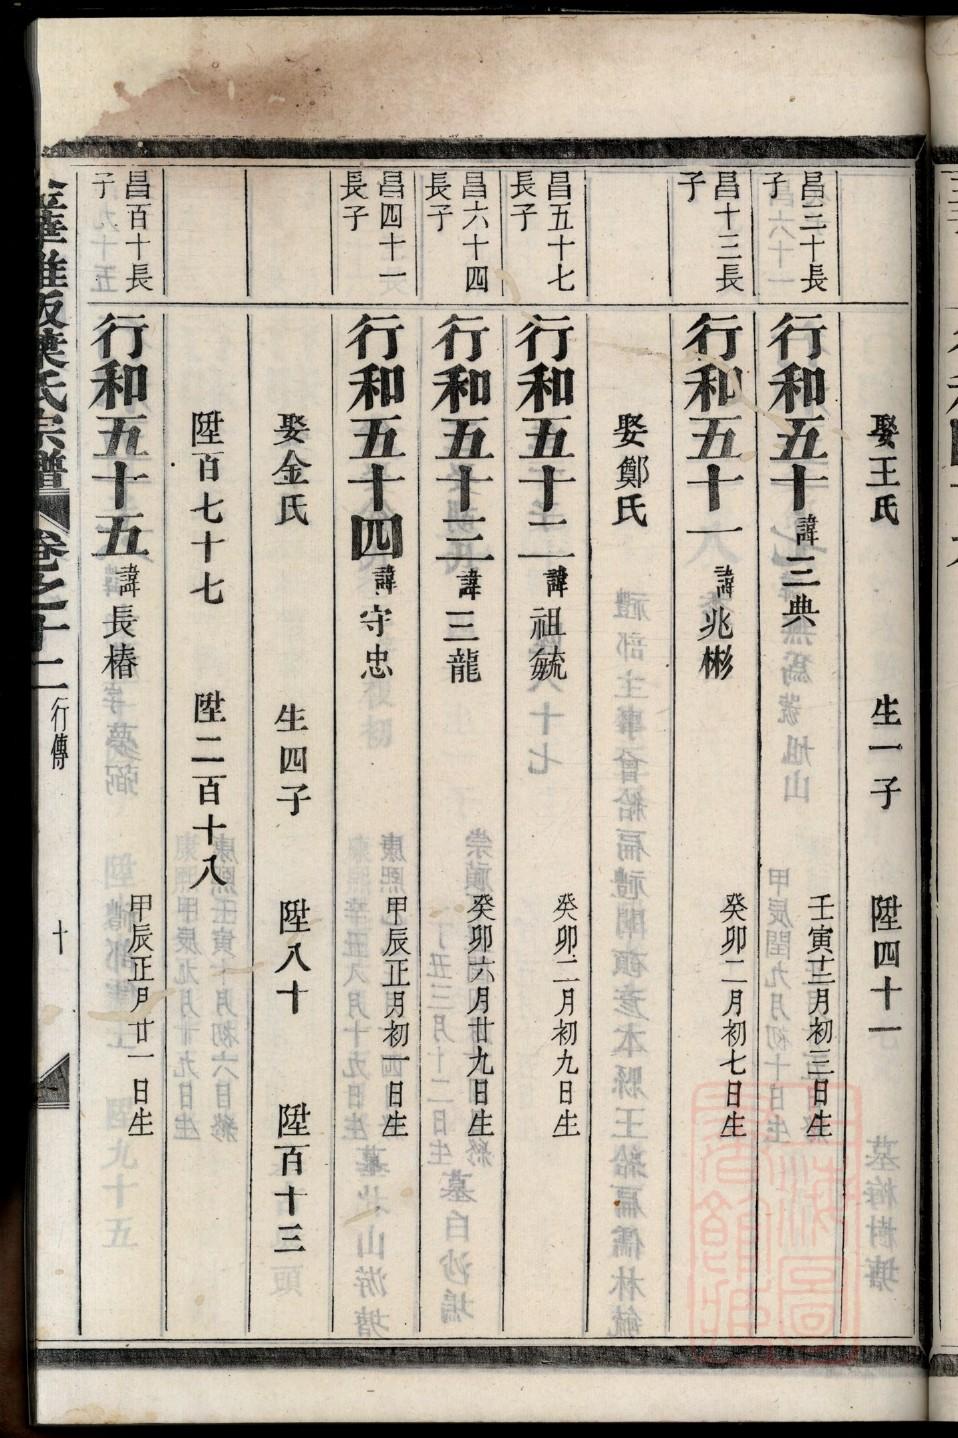 娶王氏 生一子 陞四十一
昌三十長子
行和五十 諱三典 壬寅十二月初三日生
昌十三長子
行和五十一 諱兆彬 癸卯二月初七日生
娶鄭氏
昌五十七長子
行和五十二 諱祖毓 癸卯二月初九日生
昌六十四長子
行和五十三 諱三龍 癸卯六月廿九日生
昌四十一長子
行和五十四 諱守忠 甲辰正月初一日生
娶金氏 生四子 陞八十 陞百十三
陞百七十七 陞二百十八
昌百十長子
行和五十五 諱長椿 甲辰正月廿一日生
氏宗譜 卷之十二 行傳 十